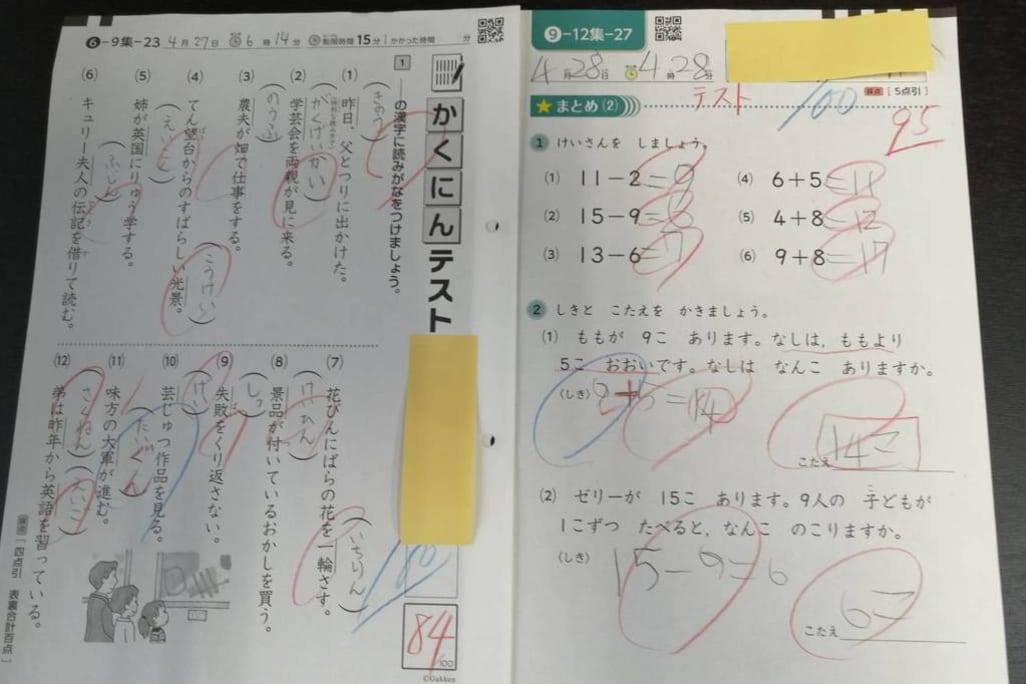 6-9集-23 4月27日 6時14分 制限時間15分 かかった時間 分
かくにんテスト
1 ——の漢字に読みがなをつけましょう。
(1) 昨日、父とつりに出かけた。
(きのう)
(2) 学芸会を両親が見に来る。
(がくげいかい)
(3) 農夫が畑で仕事をする。
(のうふ)
(4) てん望台からのすばらしい光景。
ぼう
(こうけい)
(5) 姉が英国にりゅう学する。
(えいこく)
(6) キュリー夫人の伝記を借りて読む。
(ふじん)
(7) 花びんにばらの花を一輪さす。
(いちりん)
(8) 景品が付いているおかしを買う。
(けいひん)
(9) 失敗をくり返さない。
ぱい
(しっ)
(10) 芸じゅつ作品を見る。
(げい)
(11) 味方の大軍が進む。
(たいぐん)
(12) 弟は昨年から英語を習っている。
(さくねん)(えいご)
採点「四点引 表裏合計百点」
100
84/100
©Gakken
9-12集-27
4月28日 4時28分
採点[5点引]
まとめ(2)
テスト
100
95
1 けいさんを しましょう。
(1) 11-2=9 (4) 6+5=11
(2) 15-9=6 (5) 4+8=12
(3) 13-6=7 (6) 9+8=17
2 しきと こたえを かきましょう。
(1) ももが 9こ あります。なしは、ももより
5こ おおいです。なしは なんこ ありますか。
(しき) 9+5=14
こたえ 14こ
(2) ゼリーが 15こ あります。9人の 子どもが
1こずつ たべると、なんこ のこりますか。
(しき) 15-9=6
こたえ 6こ